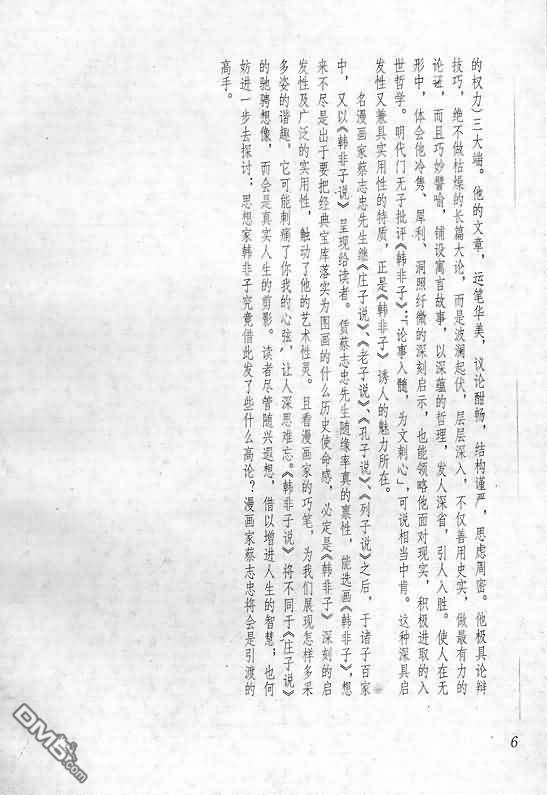 的权力)三大端。他的文章，运笔华美，议论酣畅，结构谨严，思虑周密。他极具论辩
技巧，绝不做枯燥的长篇大论，而是波澜起伏，层层深入，不仅善用史实，做最有力的
论证，而且巧妙譬喻，铺设寓言故事，以深蕴的哲理，发人深省，引人入胜。使人在无
形中，体会他冷隽、犀利、洞照纤微的深刻启示，也能领略他面对现实，积极进取的入
世哲学。明代门无子批评《韩非子》：「论事入髓，为文刺心」，可说相当中肯。这种深具启
发性又兼具实用性的特质，正是《韩非子》诱人的魅力所在。
名漫画家蔡志忠先生继《庄子说》、《老子说》、《孔子说》、《列子说》之后，于诸子百家
中，又以《韩非子说》呈现给读者。凭蔡志忠先生随缘率真的禀性，能选画《韩非子》，想
来不尽是出于要把经典宝库落实为图画的什么历史使命感，必定是《韩非子》深刻的启
发性及广泛的实用性，触动了他的艺术性灵。且看漫画家的巧笔，为我们展现怎样多采
多姿的谐趣。它可能刺痛了你我的心弦，让人深思难忘。《韩非子说》将不同于《庄子说》
的驰骋想像，而会是真实人生的剪影。读者尽管随兴遐想，借以增进人生的智慧；也何
妨进一步去探讨：思想家韩非子究竟借此发了些什么高论？漫画家蔡志忠将会是引渡的
高手。
6
DM5.com